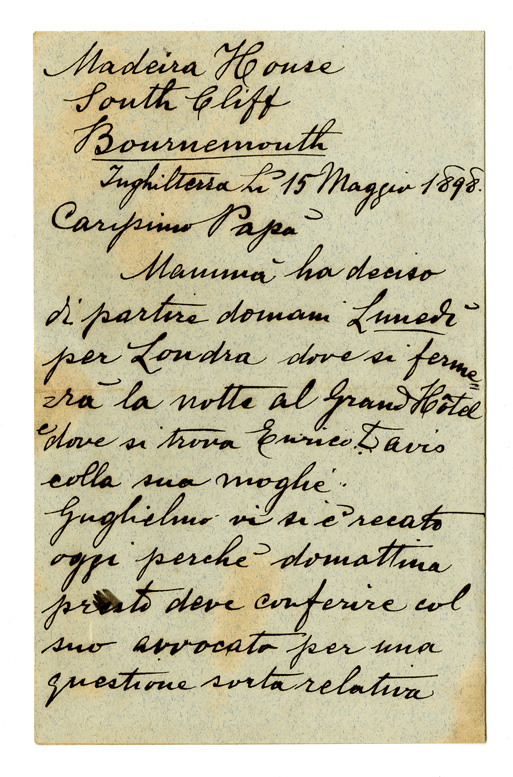 Madeira House
South Cliff
Bournemouth
Inghilterra Lì 15 Maggio 1898.
Carissimo Papà
Mammà ha deciso
di partire domani Lunedì
per Londra dove si ferme=
=rà la notte al Grand Hôtel
e dove si trova Enrico Davis
colla sua moglie.
Guglielmo vi si è recato
oggi perchè domattina
presto deve conferire col
suo avvocato per una
questione sorta relativa